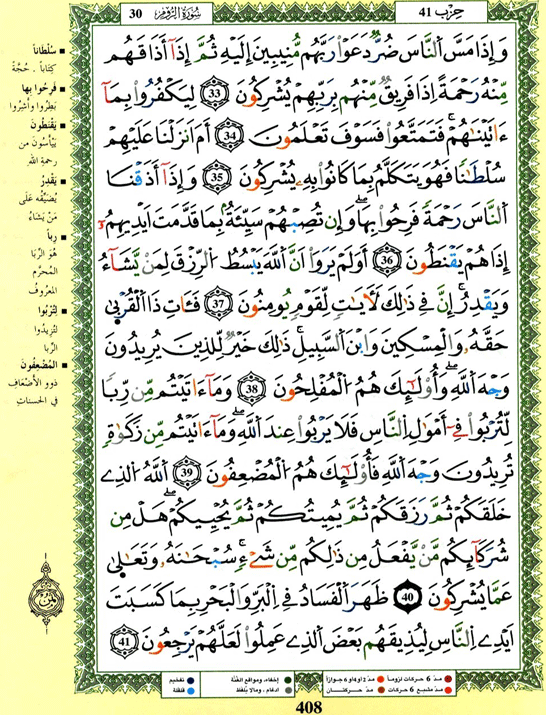 حِزْب 41
سُورَةُ الرُّومِ
30
وَإِذَا مَسَّ اَلنَّاسَ ضُرٌّ دَعَوْا رَبَّهُم مُّنِيبِينَ إِلَيْهِ ثُمَّ إِذَا أَذَاقَهُم
مِّنْهُ رَحْمَةً إِذَا فَرِيقٌ مِّنْهُم بِرَبِّهِمْ يُشْرِكُونَ 33 لِيَكْفُرُوا بِمَا
ءَاتَيْنَٰهُمْ فَتَمَتَّعُوا فَسَوْفَ تَعْلَمُونَ 34 أَمَ اَنزَلْنَا عَلَيْهِمْ
سُلْطَٰنًا فَهُوَ يَتَكَلَّمُ بِمَا كَانُوا بِهِۦ يُشْرِكُونَ 35 وَإِذَا أَذَقْنَا
اَلنَّاسَ رَحْمَةً فَرِحُوا بِهَا وَإِن تُصِبْهُمْ سَيِّئَةٌ بِمَا قَدَّمَتَ اَيْدِيهِمُۥ
إِذَا هُمْ يَقْنَطُونَ 36 أَوَلَمْ يَرَوَا اَنَّ اَللَّهَ يَبْسُطُ اُلرِّزْقَ لِمَنْ يَّشَآءُ
وَيَقْدِرُ إِنَّ فِي ذَٰلِكَ لَأَيَٰتٍ لِّقَوْمٍ يُومِنُونَ 37 فَـَٔاتِ ذَا اَلْقُرْبَىٰ
حَقَّهُۥ وَالْمِسْكِينَ وَابْنَ اَلسَّبِيلِ ذَٰلِكَ خَيْرٌ لِّلذِينَ يُرِيدُونَ
وَجْهَ اَللَّهِ وَأُوْلَٰٓئِكَ هُمُ اُلْمُفْلِحُونَ 38 وَمَا ءَاتَيْتُم مِّن رِّبًا
لِّتُرْبُوا فِي أَمْوَٰلِ اِلنَّاسِ فَلَا يَرْبُوا عِندَ اَللَّهِ وَمَا ءَاتَيْتُم مِّن زَكَوٰةٍ
تُرِيدُونَ وَجْهَ اَللَّهِ فَأُوْلَٰٓئِكَ هُمُ اُلْمُضْعِفُونَ 39 اَللَّهُ اُلذِي
خَلَقَكُمْ ثُمَّ رَزَقَكُمْ ثُمَّ يُمِيتُكُمْ ثُمَّ يُحْيِيكُمْ هَلْ مِن
شُرَكَآئِكُم مَّنْ يَّفْعَلُ مِن ذَٰلِكُم مِّن شَيْءٍ سُبْحَٰنَهُۥ وَتَعَٰلَىٰ
عَمَّا يُشْرِكُونَ 40 ظَهَرَ اَلْفَسَادُ فِي اِلْبَرِّ وَالْبَحْرِ بِمَا كَسَبَتَ
اَيْدِي اِلنَّاسِ لِيُذِيقَهُم بَعْضَ اَلذِي عَمِلُوا لَعَلَّهُمْ يَرْجِعُونَ 41
■ سُلْطَاناً
كِتَاباً . حُجَّةً
■ فَرِحُوا بِهَا
بَطِرُوا وأَشِرُوا
■ يَقْنَطُونَ
يَيْأَسُونَ من
رحمةِ الله
■ يَقْدِرُ
يُضَيِّقُه عَلَى
مَنْ يَشَاءُ
■ رِباً
هُوَ الرِّبَا
المُحرَّم
المعروفُ
■ لِتُرْبُوا
لتزيدُوا
الرِّبا
■ المُضْعِفُونَ
ذوو الأضْعَافِ
في الحسناتِ
مدّ 6 حركات لزوماً
مدّ 2 أو 4 أو 6 جوازاً
إخفاء، ومواقع الغُنَّة
تفخيم
مدّ مشبع 6 حركات
مدّ حركتـــان
إدغام ، ومالا يُلفظ
قلقلة
408